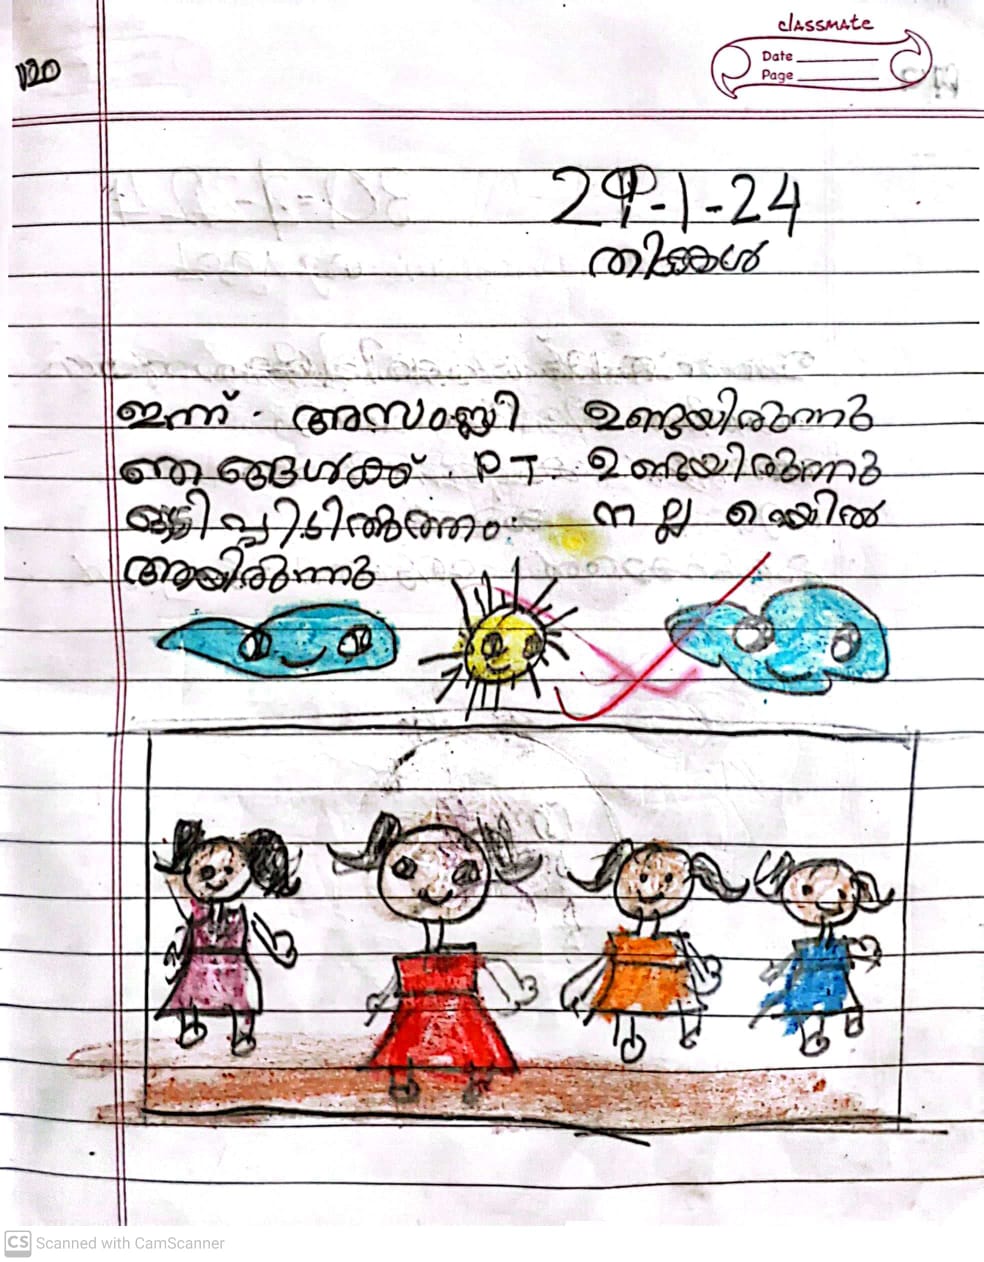 120
classmate
Date
Page
29-1-24
തിങ്കൾ
ഇന്ന് അസംബ്ലി ഉണ്ടയിരുന്നു
ഞങ്ങൾക്ക് PT ഉണ്ടയിരുന്നു
നല്ല വെയിൽ
അയിരുന്നു
CS Scanned with CamScanner